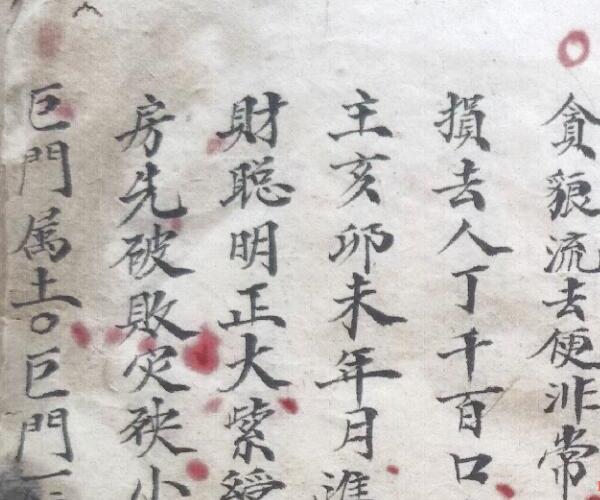 貪狼流去便非常
損去人丁千百口
主亥卯未年月進
財聪明正大紫綬
房先破敗灾殃小
巨門属土○巨門一